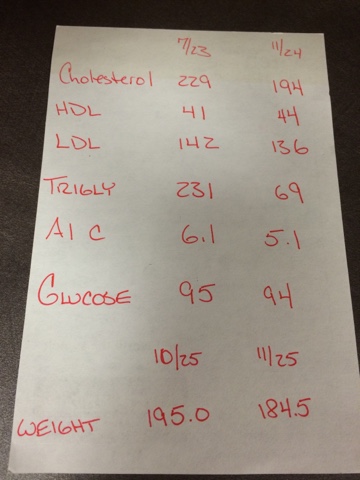 7/23 11/24
Cholesterol 229 194
HDL 41 44
LDL 142 136
TRIGLY 231 69
A1C 6.1 5.1
GLUCOSE 95 94
10/25 11/25
WEIGHT 195.0 184.5